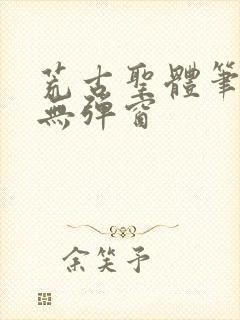 荒古聖體筆
無彈窗
余笑予